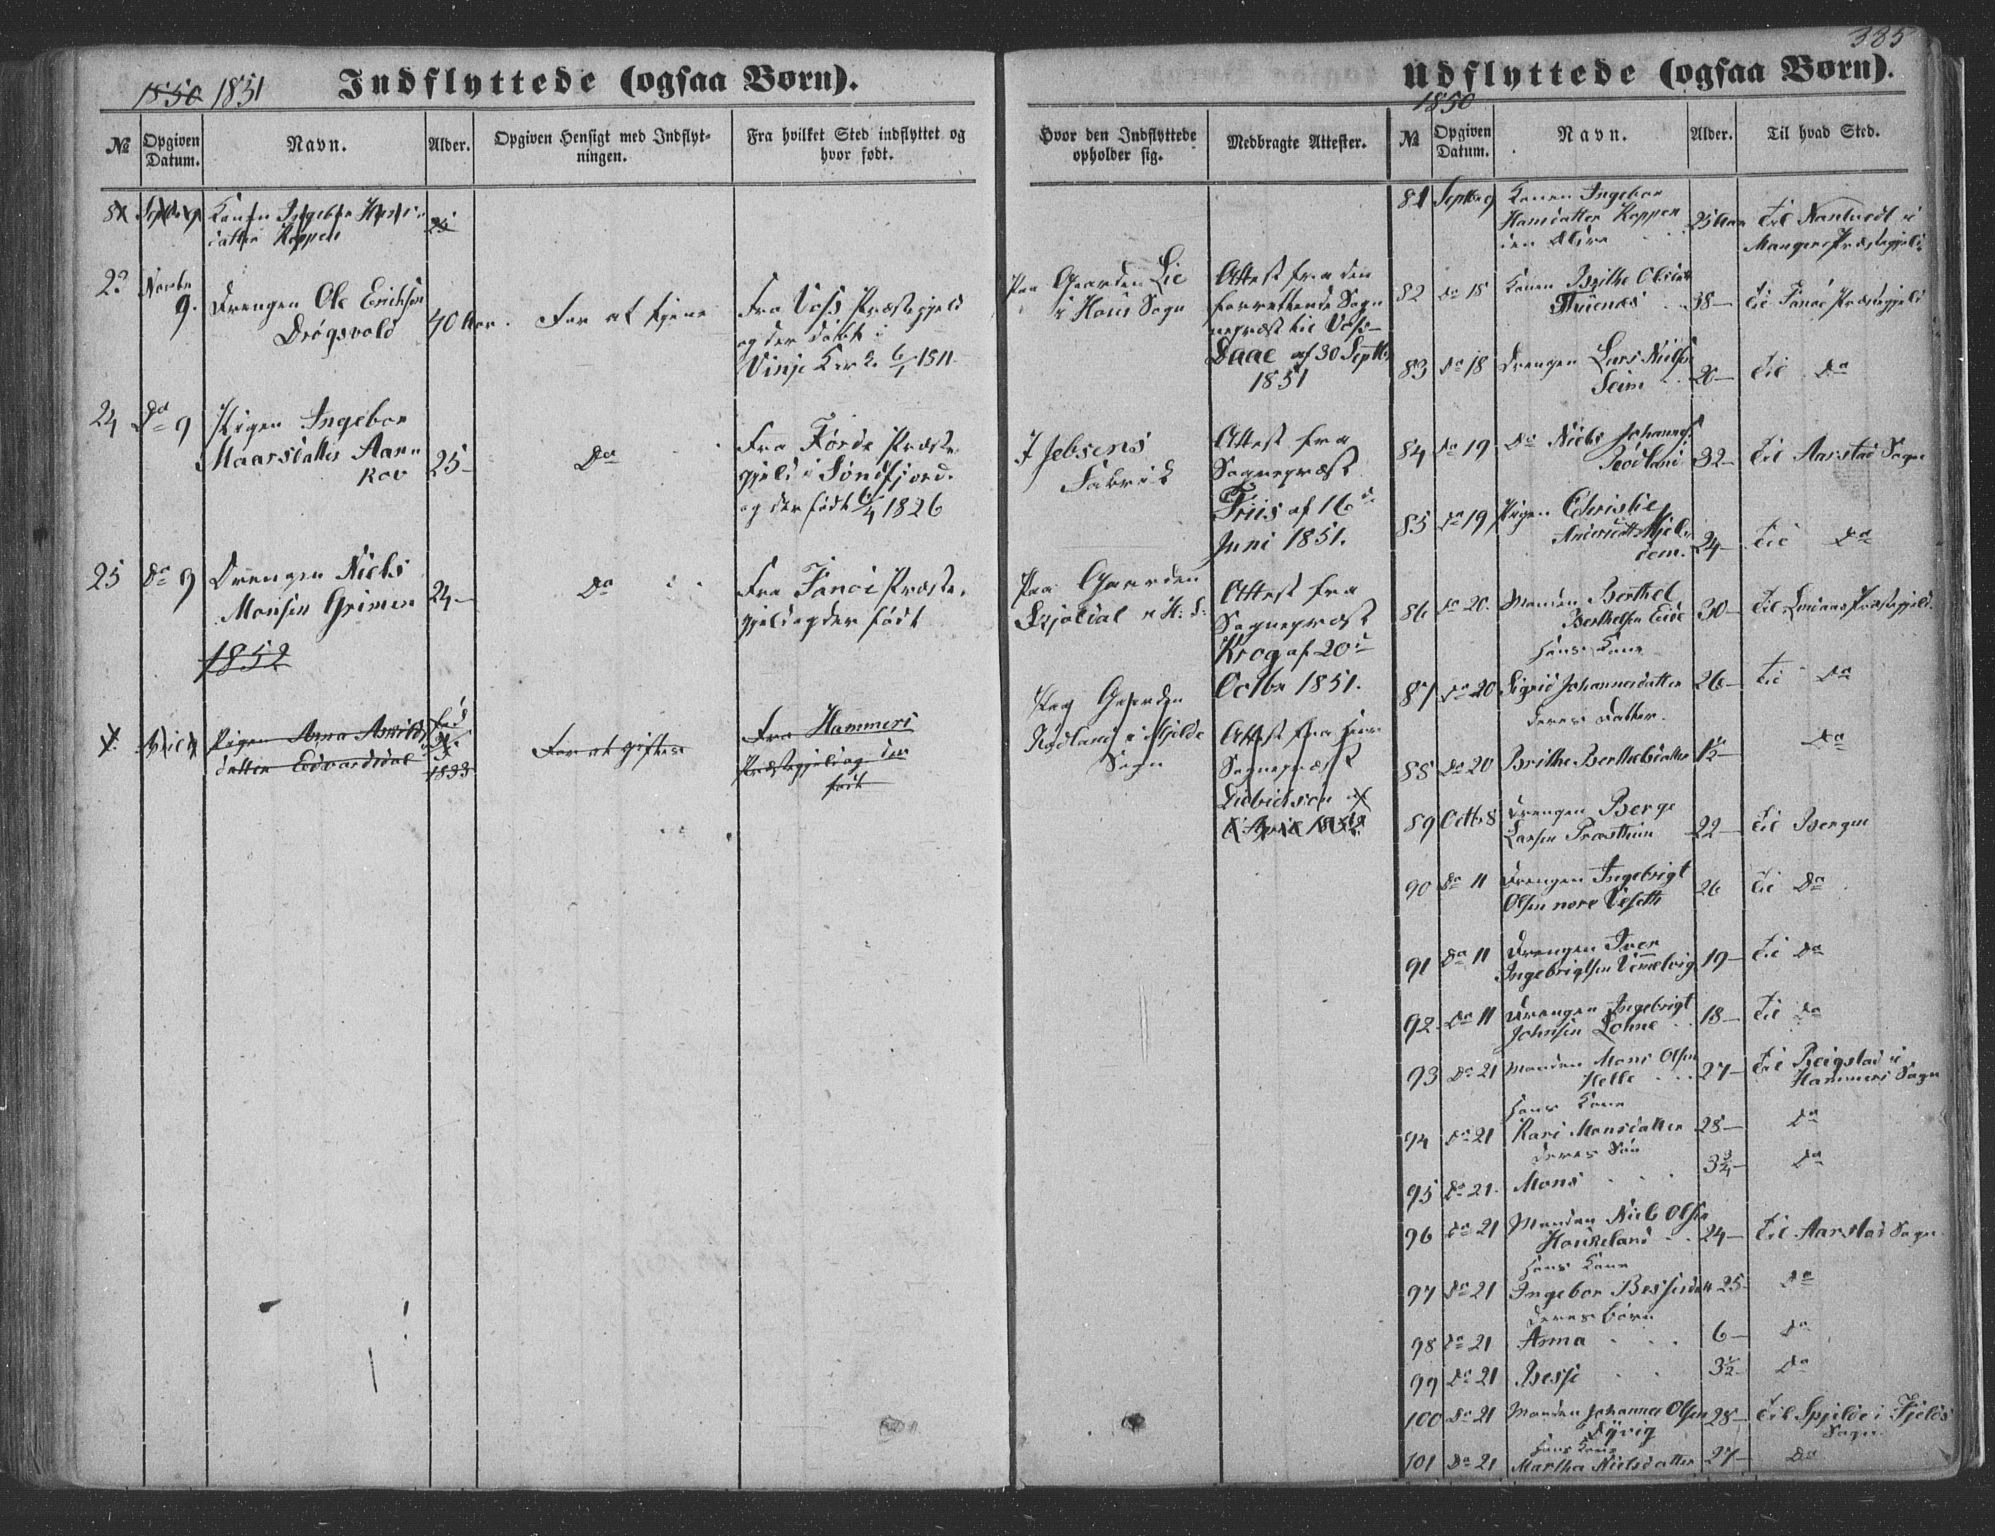 385
1850 1851 Indflyttede (ogsaa Børn).
№
Opgiven Datum.
Navn.
Alder.
Opgiven Hensigt med Indflyt-
ningen.
Fra hvilket Sted indflyttet og
hvor født.
Hvor den Indflyttede
opholder sig.
Medbragte Attester.
81 Septbr 9 Konen Ingebor
datter Koppen
25
Novbr
9. Drengen Ole Erichsen
Drøgsvold
40 Aar.
For at tjene
Fra Voss Præstegjeld
og der døbt i
Vinje Kirke 6/1 1811
Paa Gaarden Lie
i Hous Sogn
Attest fra den
forrettende Sogne-
præst til Voss
Daae af 30 Septbr
1851
24 Do 9 Pigen Ingebor
25-
Do
Fra Førde Præste-
gjeld i Søndfjord
og der født 6/4 1826
J Jebsens
Fabrik
Attest fra
Sognepræst
Friis af 16de
Juni 1851.
25 Do 9 Drengen Niels
Monsen Grimen
24-
Do
Fra Fanøe Præste-
gjeld og der født
Paa Gaarden
Attest fra
Sognepræst
Krog af 20de
Octbr 1851.
1852
Pigen Anna
datter Edvardsdal
født
1833
For at giftes
Fra Hammers
Præstegjeld og der
født
Paa Gaarden
Rødland i Mjelde
Sogn
Attest fra
Sognepræst
Didrichsen af
April 1852
Udflyttede (ogsaa Børn).
1850
№
Opgiven Datum.
Navn.
Alder.
Til hvad Sted.
81 Septbr 9 Konen Ingebor
Hansdatter Koppen
25 Aar Til Nantvedt i
Mangers Præstegjeld
82 Do 18 Konen Brithe Olsdatter
38- Til Fanøe Præstegjeld
83 Do 18 Drengen Lars Nielsen
Seim 20- Til Do
84 Do 19 Do Niels Johannes.
Rødland 32- Til Aarstad Sogn
85 Do 19 Pigen Christie
24- Til Do
86 Do 20. Manden Berthel
Berthelsen Eide 30- Til Præstegjeld
hans Kone
87 Do 20 Sigrid Johannesdatter 26- Til Do
deres Datter.
88 Do 20 Brithe Berthelsdatter Do
89 Octbr 8 Drengen Berge
Larsen Præsthun 22- Til Bergen
90 Do 11 Drengen Ingebrigt
Olsen nore 26 Til Do
91 Do 11 Drengen Iver
Ingebrigtsen 19- Til Do
92 Do 11 Drengen Ingebrigt
Johnsen Lohne 18- Til Do
93 Do 21 Manden Mons Olsen
Helle 27- Til Reigstad i
Hammers Sogn
hans Kone
94 Do 21 Kari Monsdatter 28- Do
deres Søn
95 Do 21. Mons 3 3/4- Do
96 Do 21 Manden Niels Olsen
Haukeland 24- Til Aarstad Sogn
hans Kone
97 Do 21 Ingebor 25- Do
deres Børn
98 Do 21 Anna 6- Do
99 Do 21 Besse 3 1/2 Do
100 Do 21 Manden Johannes Olsen 28- Til Spjilde i Fjelds
Dyvig Sogn
hans Kone
101 Do 21 Martha Nielsdatter 27- Do